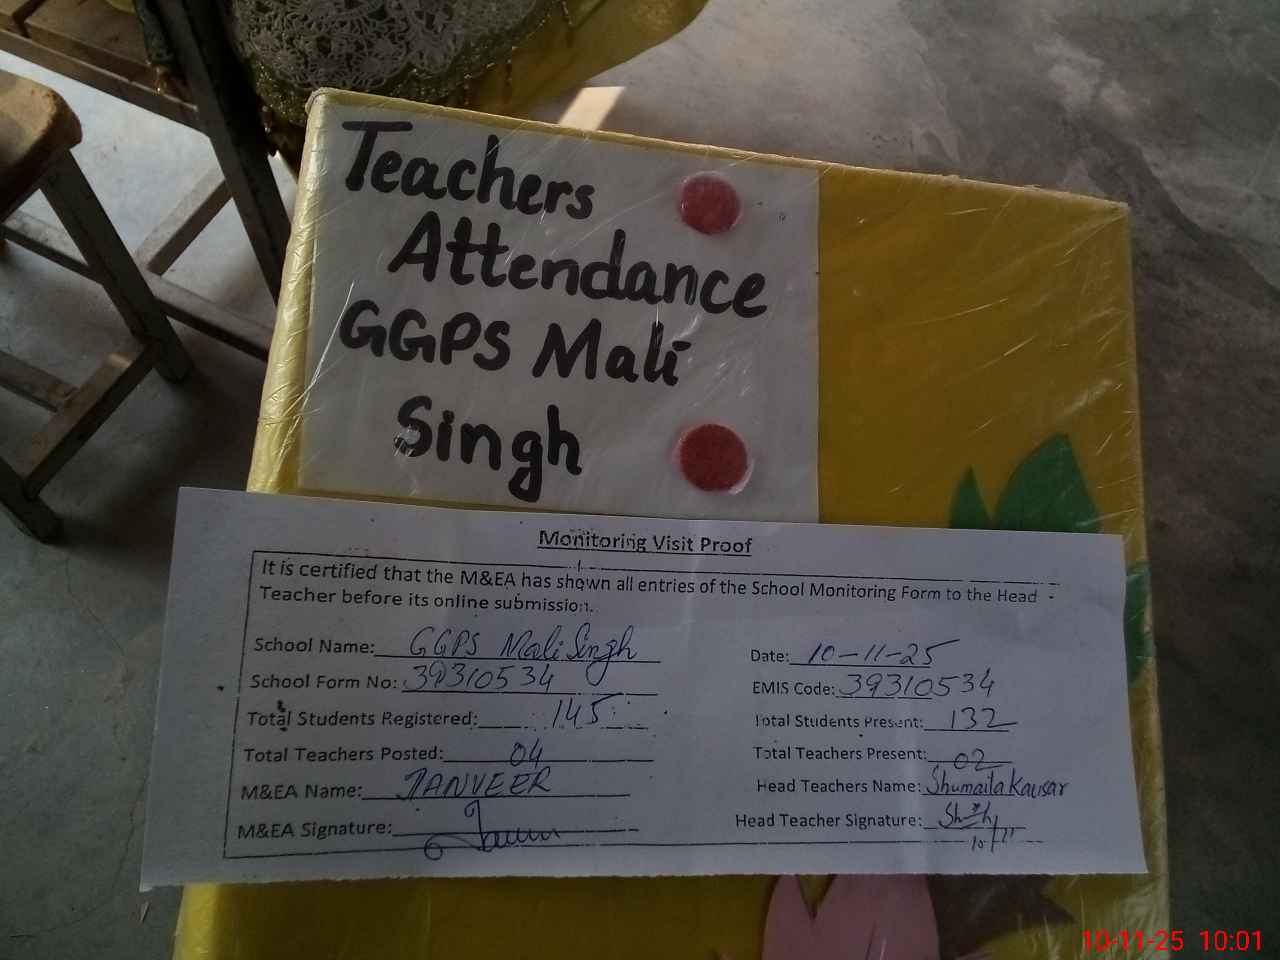 Teachers
Attendance
GGPS Mali
Singh
Monitoring Visit Proof
It is certified that the M&EA has shown all entries of the School Monitoring Form to the Head
Teacher before its online submission.
School Name: GGPS Mali Singh Date: 10-11-25
School Form No: 39310534 EMIS Code: 39310534
Total Students Registered: 145 Total Students Present: 132
Total Teachers Posted: 04 Total Teachers Present: 02
M&EA Name: TANVEER Head Teachers Name: Shumaila Kausar
M&EA Signature: Head Teacher Signature:
10/11
10-11-25 10:01